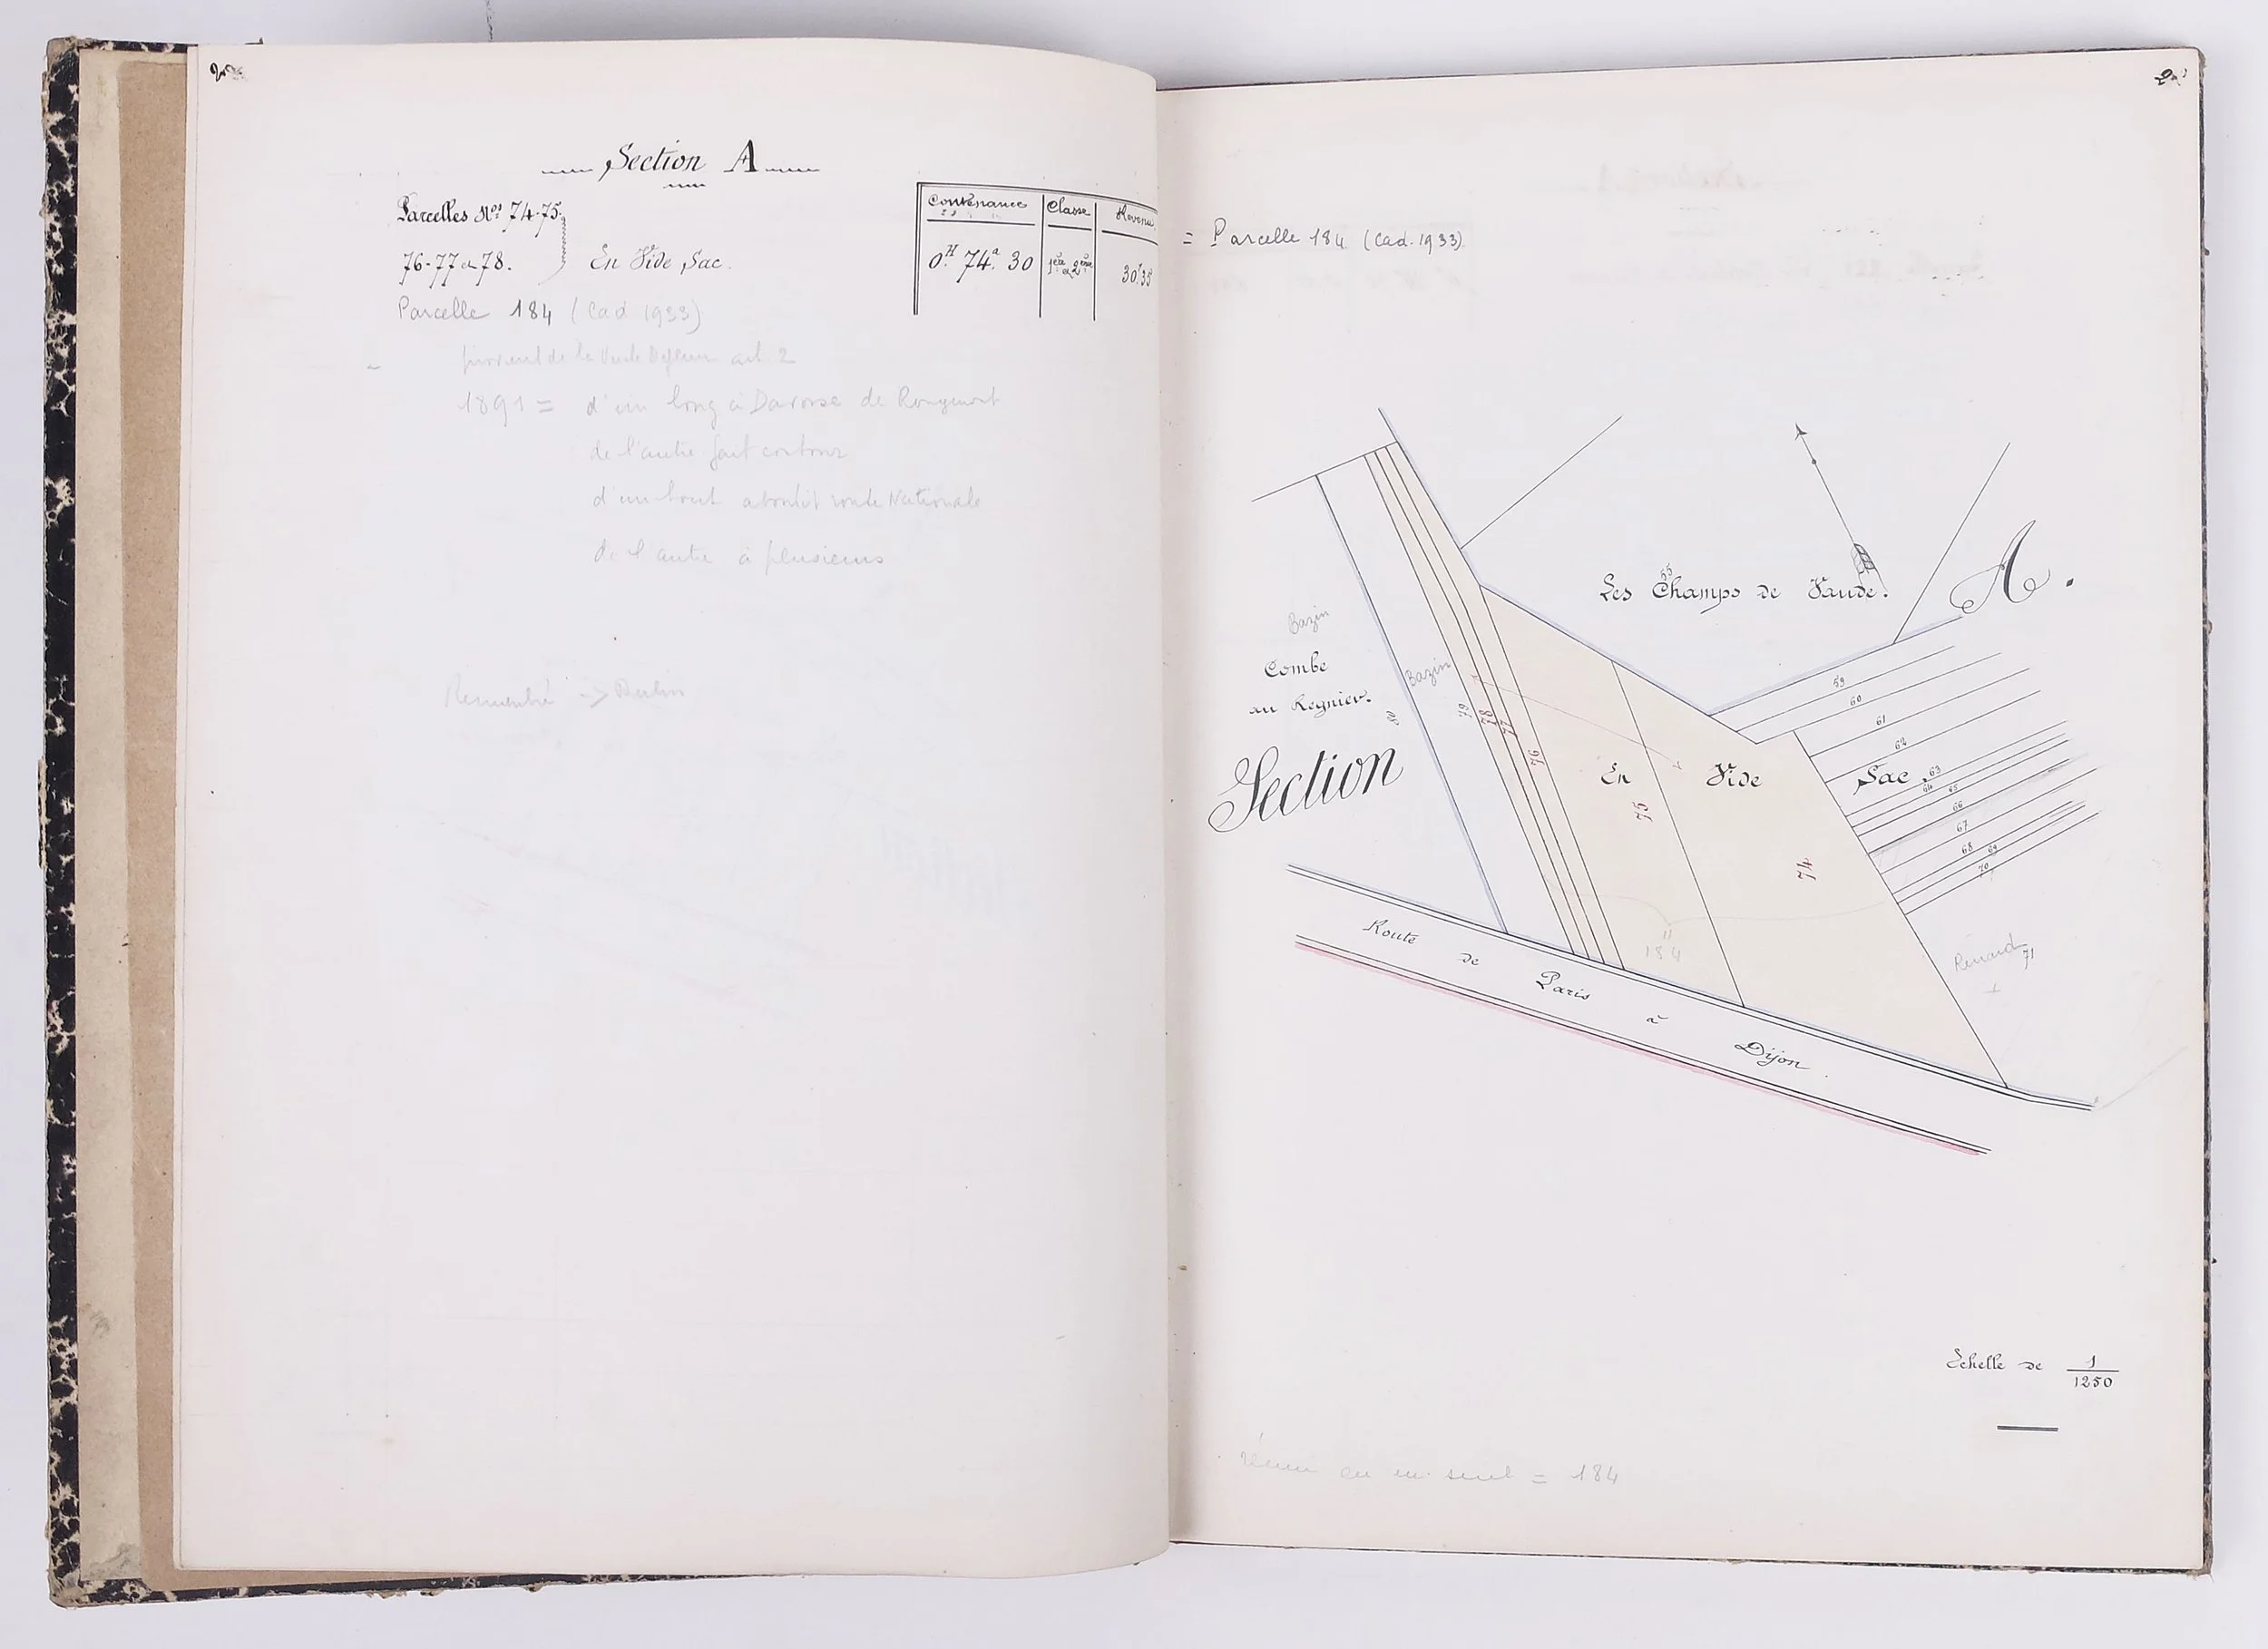 2
Section A
Parcelles Nos 74-75.
76-77 et 78.
En Vide Sac.
Contenance Classe Revenu
0H 74a 30 1ère et 2ème 30f35
Parcelle 184 (Cad 1933)
provient de la Vente art 2
1891 = d'un long à Davouse de Rougemont
de l'autre fait contour
d'un bout aboutit route Nationale
de l'autre à plusieurs
Remembré ->
2
= Parcelle 184 (Cad. 1933)
Les Champs de Vaude.
55
A.
Bazin
Combe
au Regnier.
Bazin
80
79
78
77
76
75
74
59
60
61
62
63
64
65
66
67
68
69
70
71
Section
En Vide Sac.
184
Renard
Route de Paris à Dijon.
Echelle de 1/1250
réuni en un seul = 184